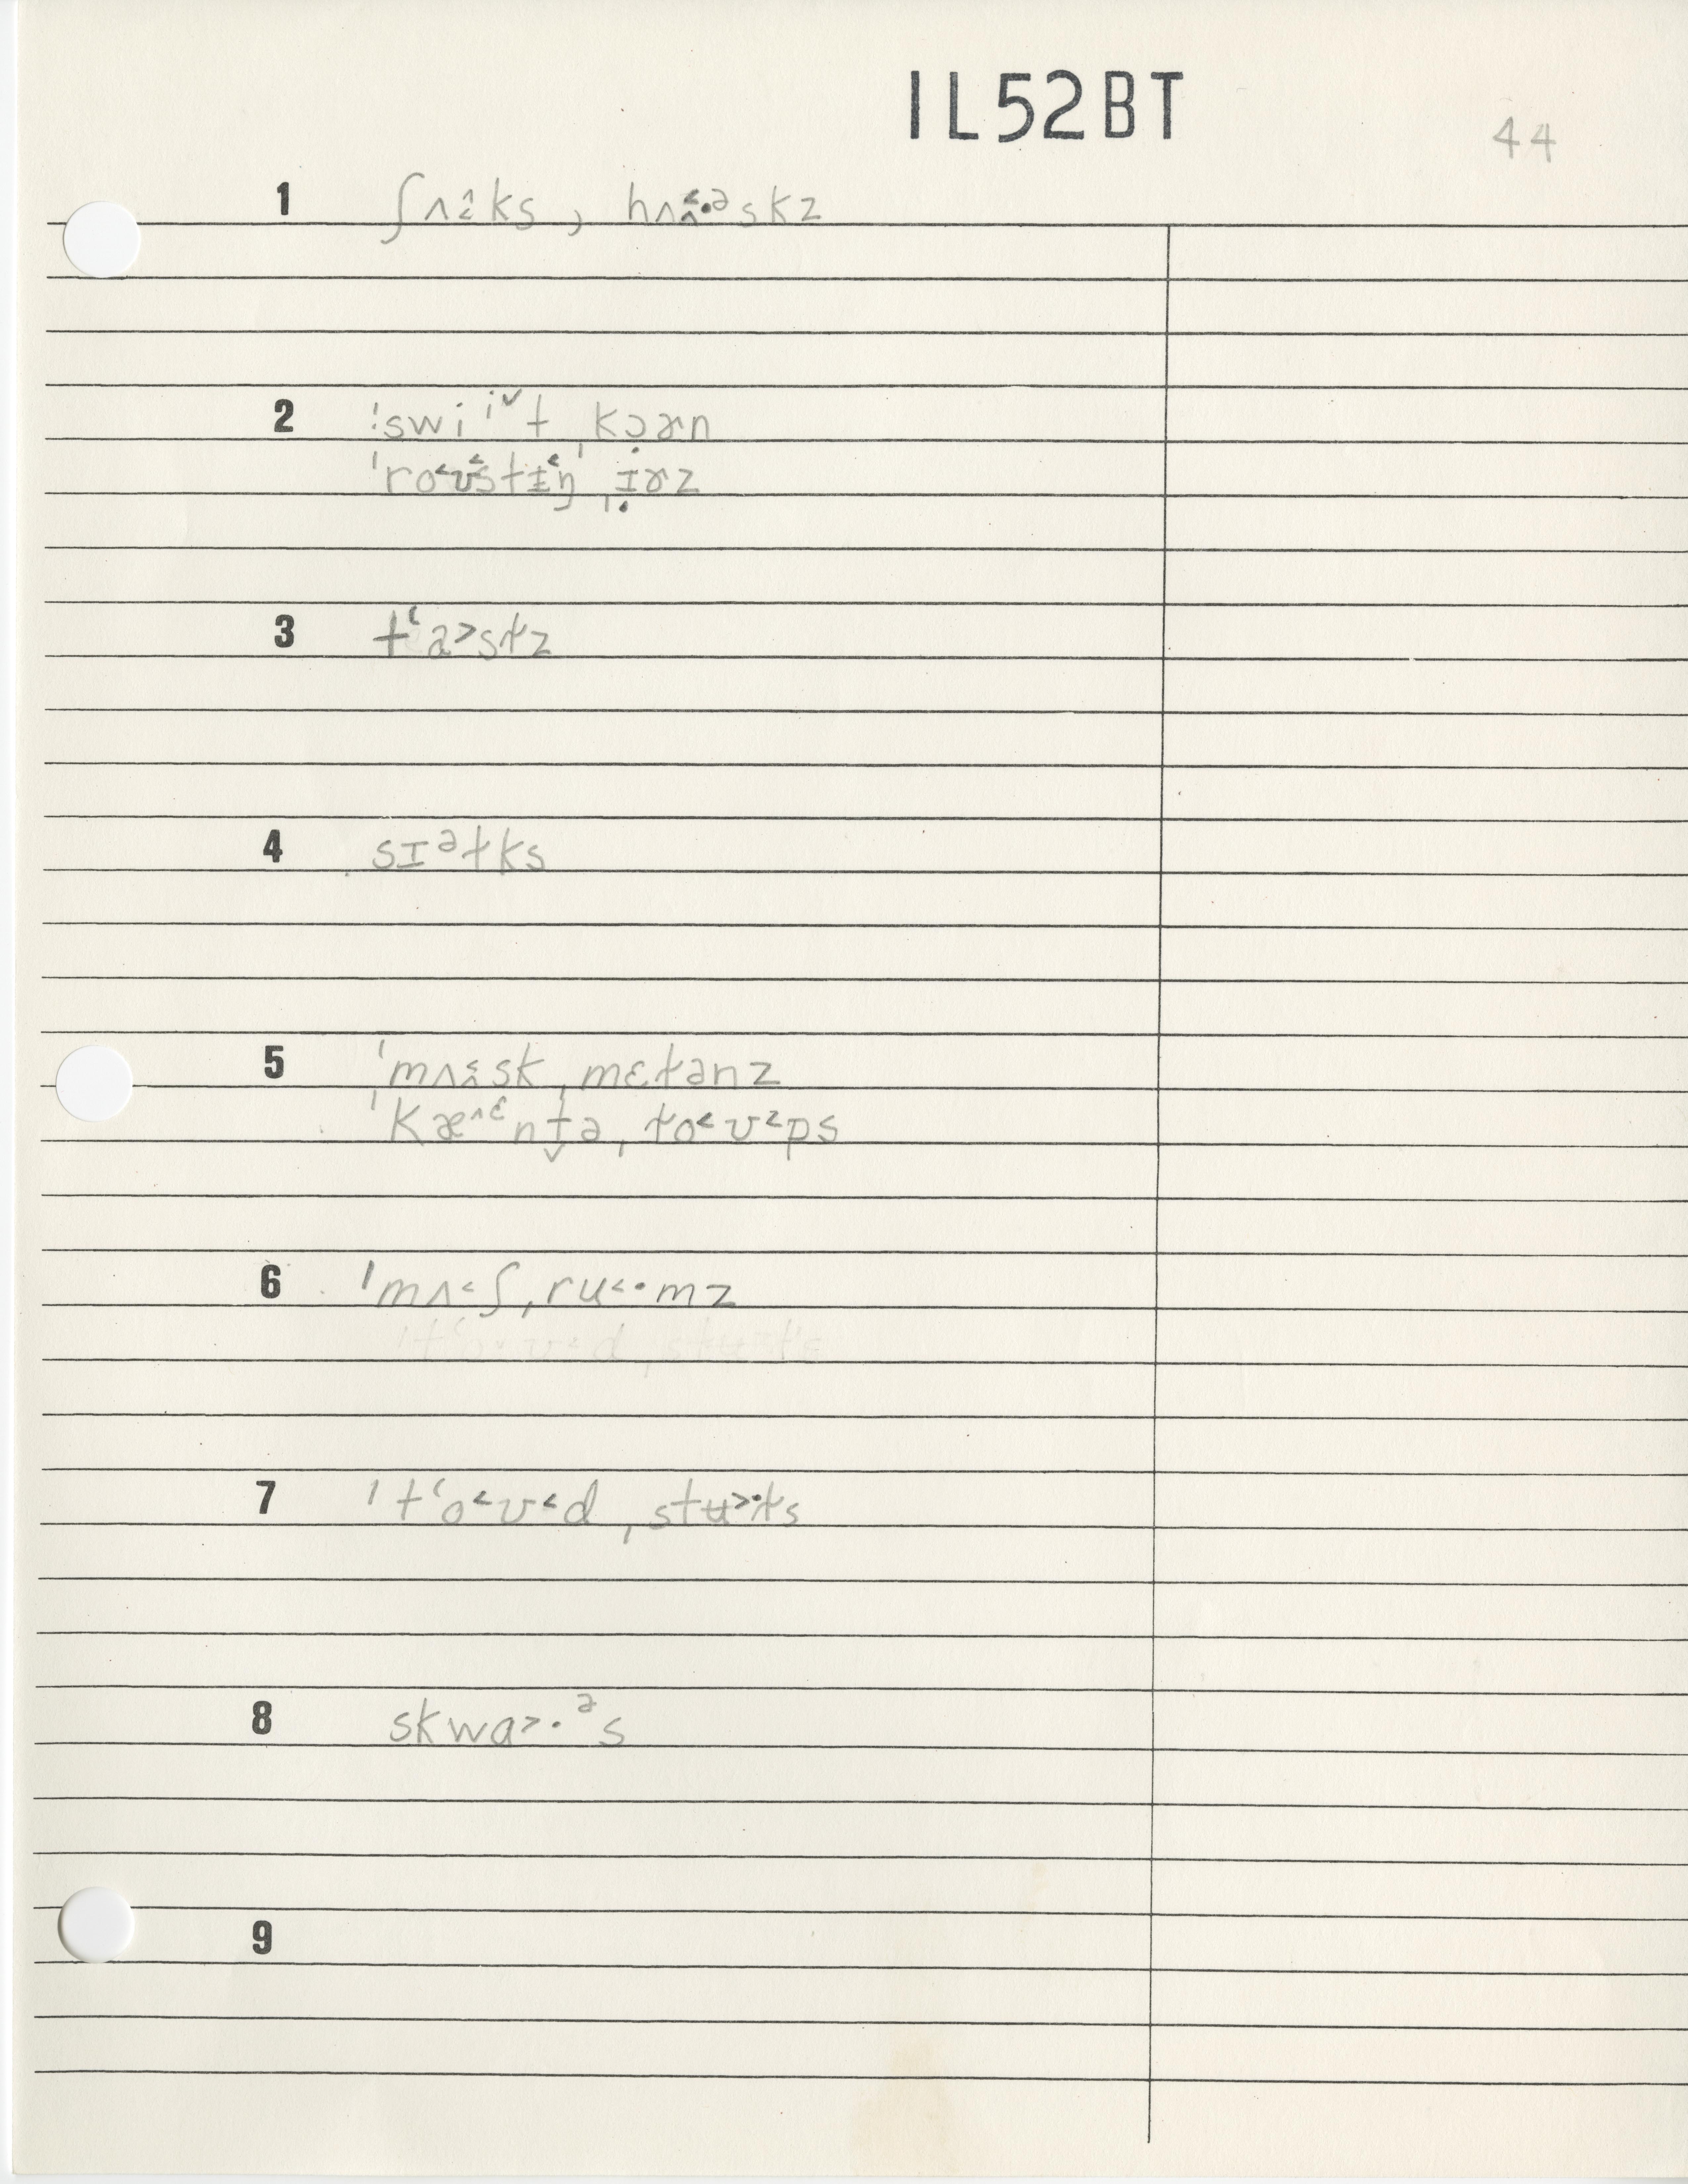 IL52BT
44
1 ʃʌ˄˂ks, hʌ˂˄·ᵊskz
2 ˈswiⁱ˅t ˌkɔɚn
ˈro˂ʊ˂stɪ˂ŋ ˌɪɚz
3 tʻa>stz
4 sɪᵊtks
5 ˈmʌ˂˄sk ˌmɛtənz
ˈkæ˄ᵋntə ˌto˂ʊ˂ps
6 ˈmʌ˂ʃ ˌru˂·mz
7 ˈtʻo˂ʊ˂d ˌstʉ>·ts
8 skwɑ>·ᵊs
9